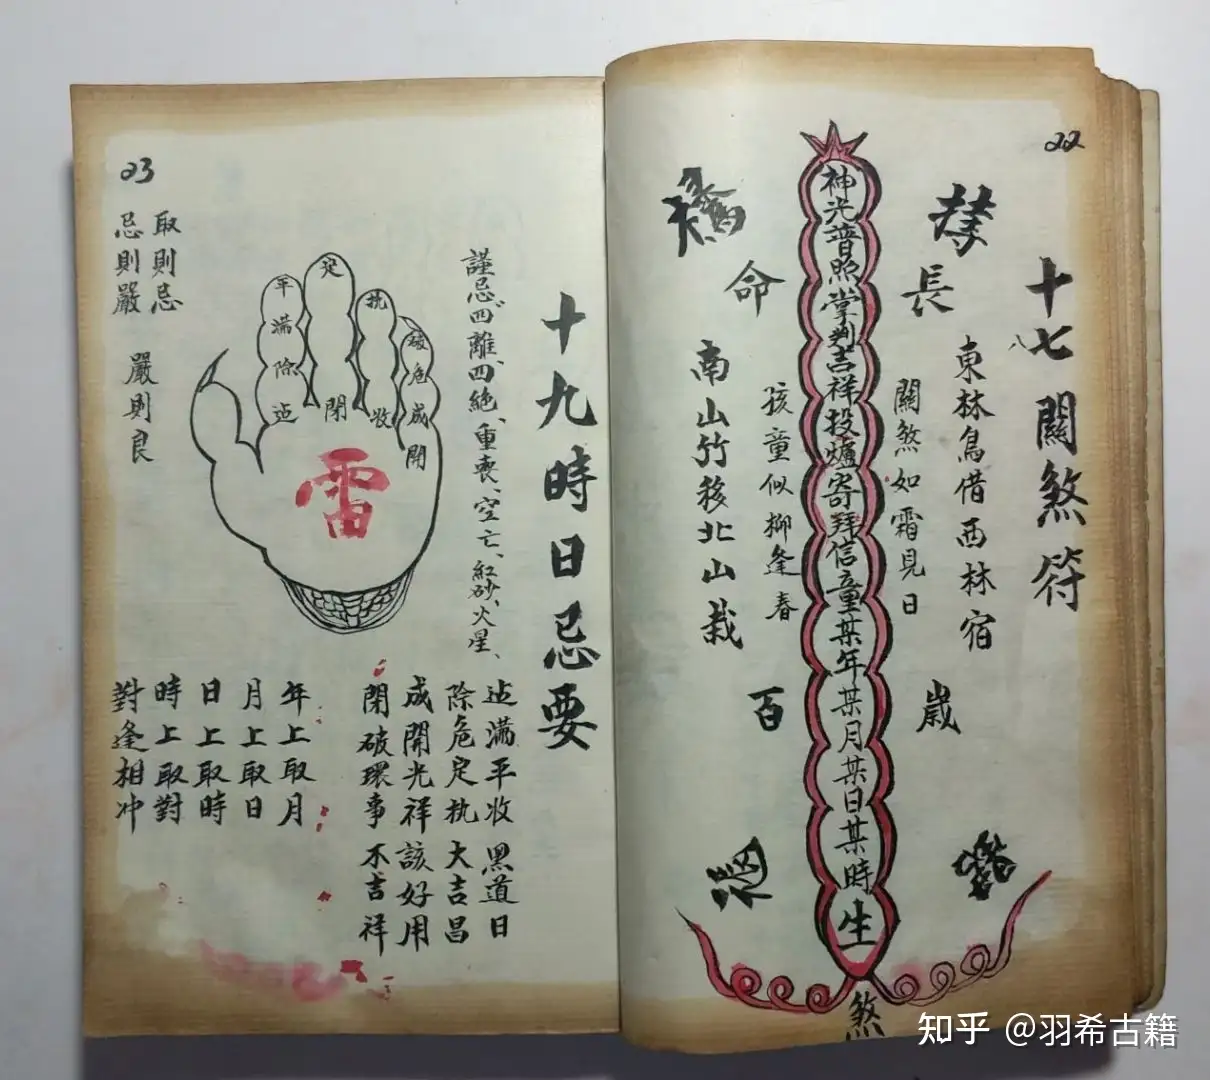 22
十七關煞符
八
東林鳥借西林宿
長
歲
關煞如霜見日
神光普照掌判吉祥投爐寄拜信童某年某月某日某時生
煞
孩童似柳逢春
命
百
南山竹移北山栽
十九時日忌要
謹忌四離、四絕、重喪、空亡、紅砂、火星、
建滿平收黑道日
除危定执大吉昌
成開光祥該好用
閉破環事不吉祥
年上取月
月上取日
日上取時
時上取對
對逢相冲
平
滿
除
建
定
閉
执
收
破
危
成
開
雷
23
取則忌
忌則嚴
嚴則良
知乎 @羽希古籍